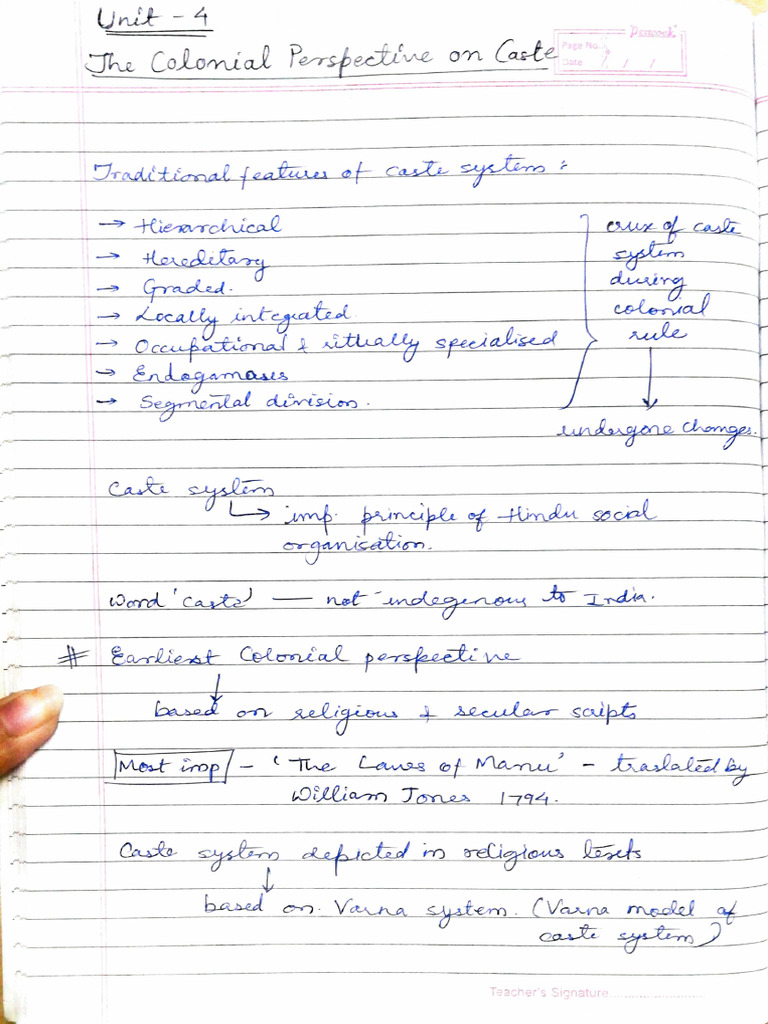 Unit - 4
The Colonial Perspective on Caste
Peacock
Page No.
Date / / /
Traditional features of caste system :
→ Hierarchical
→ Hereditary
→ Graded.
→ Locally integrated
→ Occupational & ritually specialised
→ Endogamases
→ Segmental division.
crux of caste
system
during
colonial
rule
↓
undergone changes.
Caste system
↳ imp. principle of Hindu social
organisation.
Word 'caste' — not indegenous to India.
# Earliest Colonial perspective
↓
based on religious & secular scripts
Most imp - 'The Laws of Manu' - traslated by
William Jones 1794.
Caste system depicted in religious texts
↓
based on. Varna system. (Varna model of
caste system)
Teacher's Signature........................